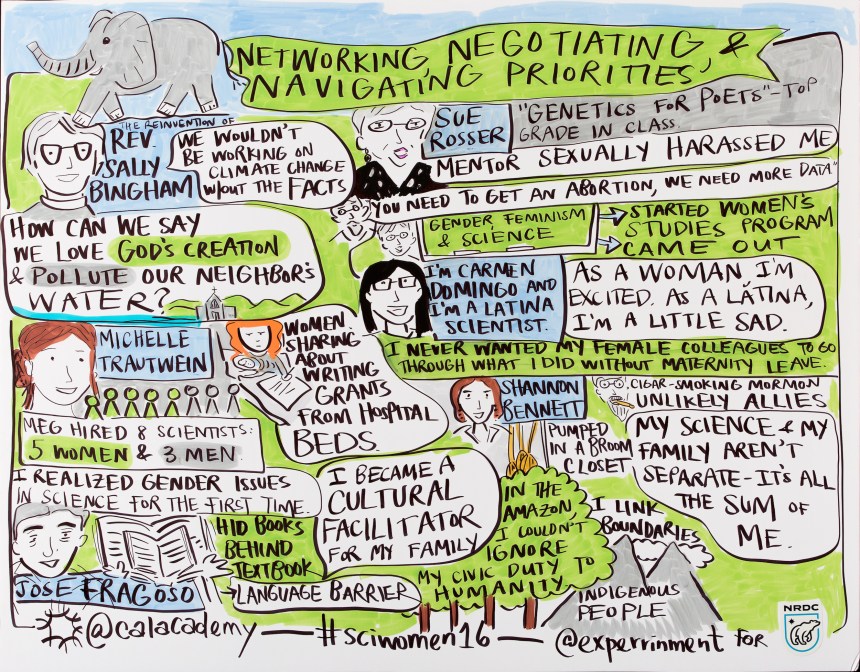 NETWORKING, NEGOTIATING &
NAVIGATING PRIORITIES
THE REINVENTION OF
REV.
SALLY
BINGHAM
WE WOULDN'T
BE WORKING ON
CLIMATE CHANGE
W/OUT THE FACTS
HOW CAN WE SAY
WE LOVE GOD'S CREATION
& POLLUTE OUR NEIGHBOR'S
WATER?
SUE
ROSSER
"GENETICS FOR POETS"-TOP
GRADE IN CLASS.
MENTOR SEXUALLY HARASSED ME
"YOU NEED TO GET AN ABORTION, WE NEED MORE DATA"
GENDER FEMINISM
& SCIENCE
STARTED WOMEN'S
STUDIES PROGRAM
CAME OUT
I'M CARMEN
DOMINGO AND
I'M A LATINA
SCIENTIST.
AS A WOMAN I'M
EXCITED. AS A LATINA,
I'M A LITTLE SAD.
I NEVER WANTED MY FEMALE COLLEAGUES TO GO
THROUGH WHAT I DID WITHOUT MATERNITY LEAVE.
MICHELLE
TRAUTWEIN
WOMEN
SHARING
ABOUT
WRITING
GRANTS
FROM HOSPITAL
BEDS.
MEG HIRED 8 SCIENTISTS:
5 WOMEN & 3 MEN
I REALIZED GENDER ISSUES
IN SCIENCE FOR THE FIRST TIME.
SHANNON
BENNETT
CIGAR-SMOKING MORMON
UNLIKELY ALLIES
PUMPED
IN A BROOM
CLOSET
MY SCIENCE & MY
FAMILY AREN'T
SEPARATE-IT'S ALL
THE SUM OF
ME.
JOSE FRAGOSO
HID BOOKS
BEHIND
TEXTBOOK
LANGUAGE BARRIER
I BECAME A
CULTURAL
FACILITATOR
FOR MY FAMILY
IN THE
AMAZON,
I COULDN'T
IGNORE
MY CIVIC DUTY TO
HUMANITY
I LINK
BOUNDARIES
INDIGENOUS
PEOPLE
@calacademy — #sciwomen16 — @experrinment FOR
NRDC